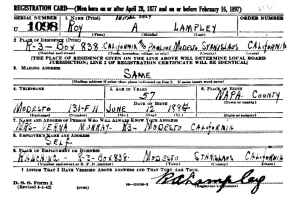 REGISTRATION CARD—(Men born on or after April 28, 1877 and on or before February 16, 1897)
SERIAL NUMBER 1. NAME (Print) ORDER NUMBER
U 1098 ROY A LAMPLEY
(First) (Middle) (Last)
2. PLACE OF RESIDENCE (Print)
R-3-BOX 838-CALIFORNIA & MODESTO STANISLAUS CALIFORNIA
(THE PLACE OF RESIDENCE GIVEN ON THE LINE ABOVE WILL DETERMINE LOCAL BOARD
JURISDICTION; LINE 2 OF REGISTRATION CERTIFICATE WILL BE IDENTICAL)
3. MAILING ADDRESS
SAME
[Mailing address if other than place indicated on line 2. If same insert word same]
4. TELEPHONE 5. AGE IN YEARS 6. PLACE OF BIRTH
57 NAPA COUNTY
DATE OF BIRTH
MODESTO 131-F-11 JUNE 12
7. NAME AND ADDRESS OF PERSON WHO WILL ALWAYS KNOW YOUR ADDRESS
MURRAY-R3-MODESTO CALIFORNIA
8. EMPLOYER'S NAME AND ADDRESS
SELF
9. PLACE OF EMPLOYMENT OR BUSINESS
RANCHING-R-3-BOX 838- MODESTO STANISLAUS CALIFORNIA
I AFFIRM THAT I HAVE VERIFIED ABOVE ANSWERS AND THAT THEY ARE TRUE.
D. S. S. Form 1
(Revised 4-1-42) (over)
R A Lampley